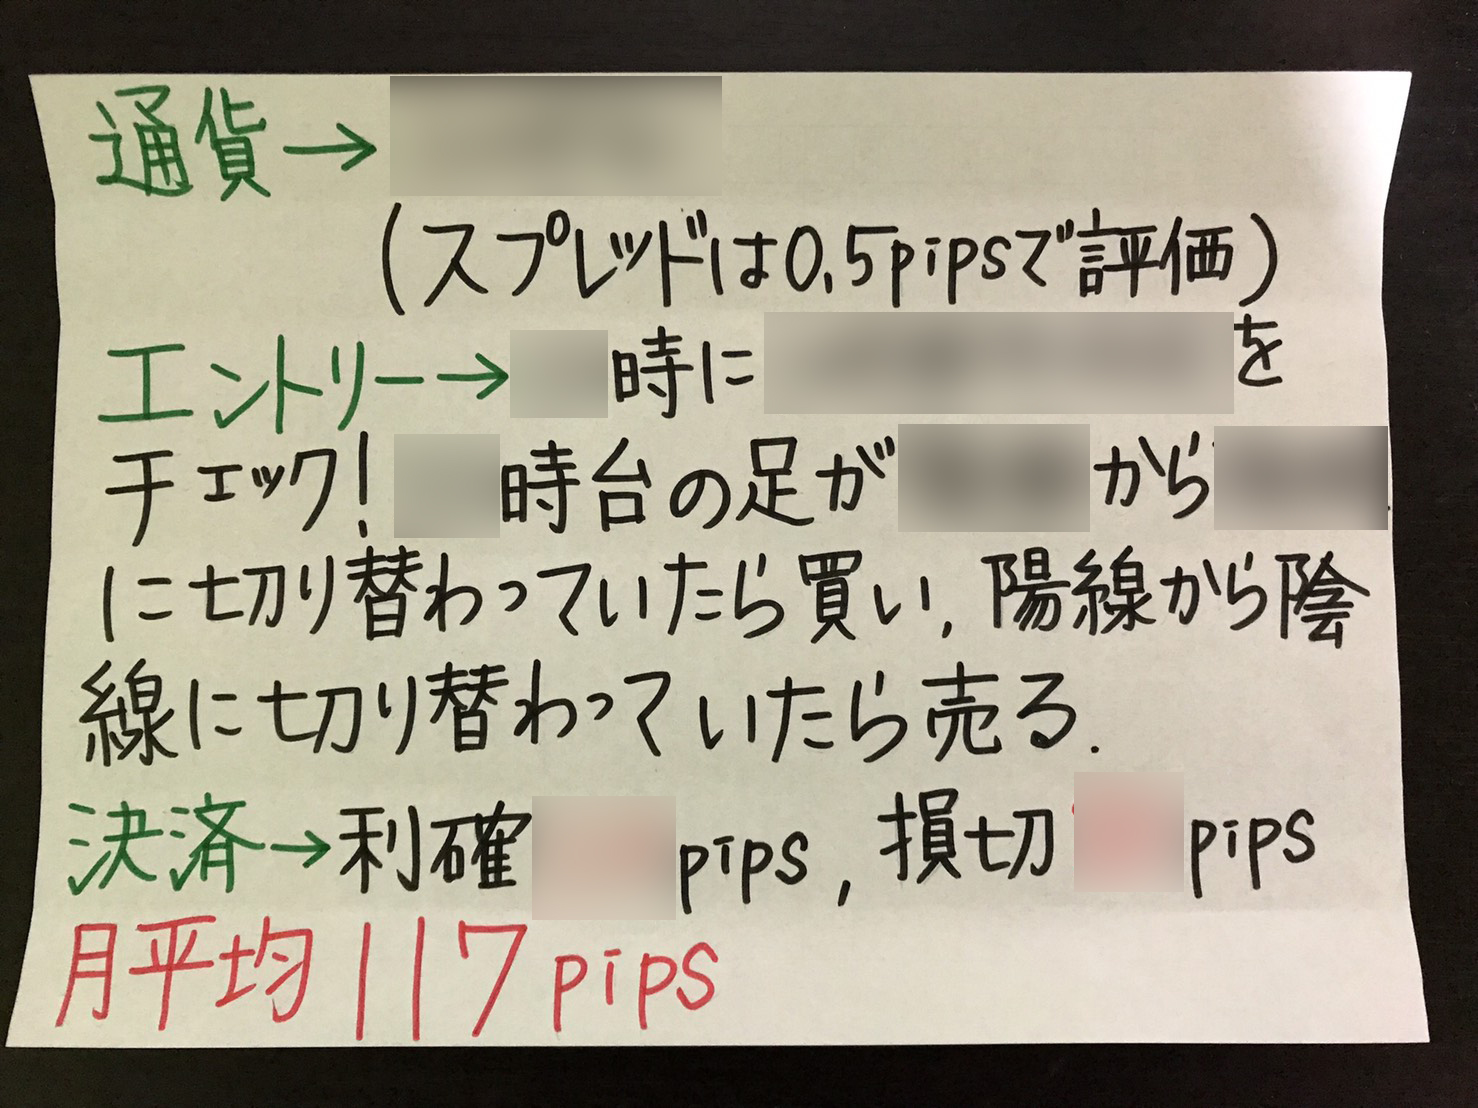 通貨→
(スプレッドは0.5pipsで評価)
エントリー→ 時に を
チェック! 時台の足が から
に切り替わっていたら買い,陽線から陰
線に切り替わっていたら売る.
決済→利確 pips,損切 pips
月平均117pips